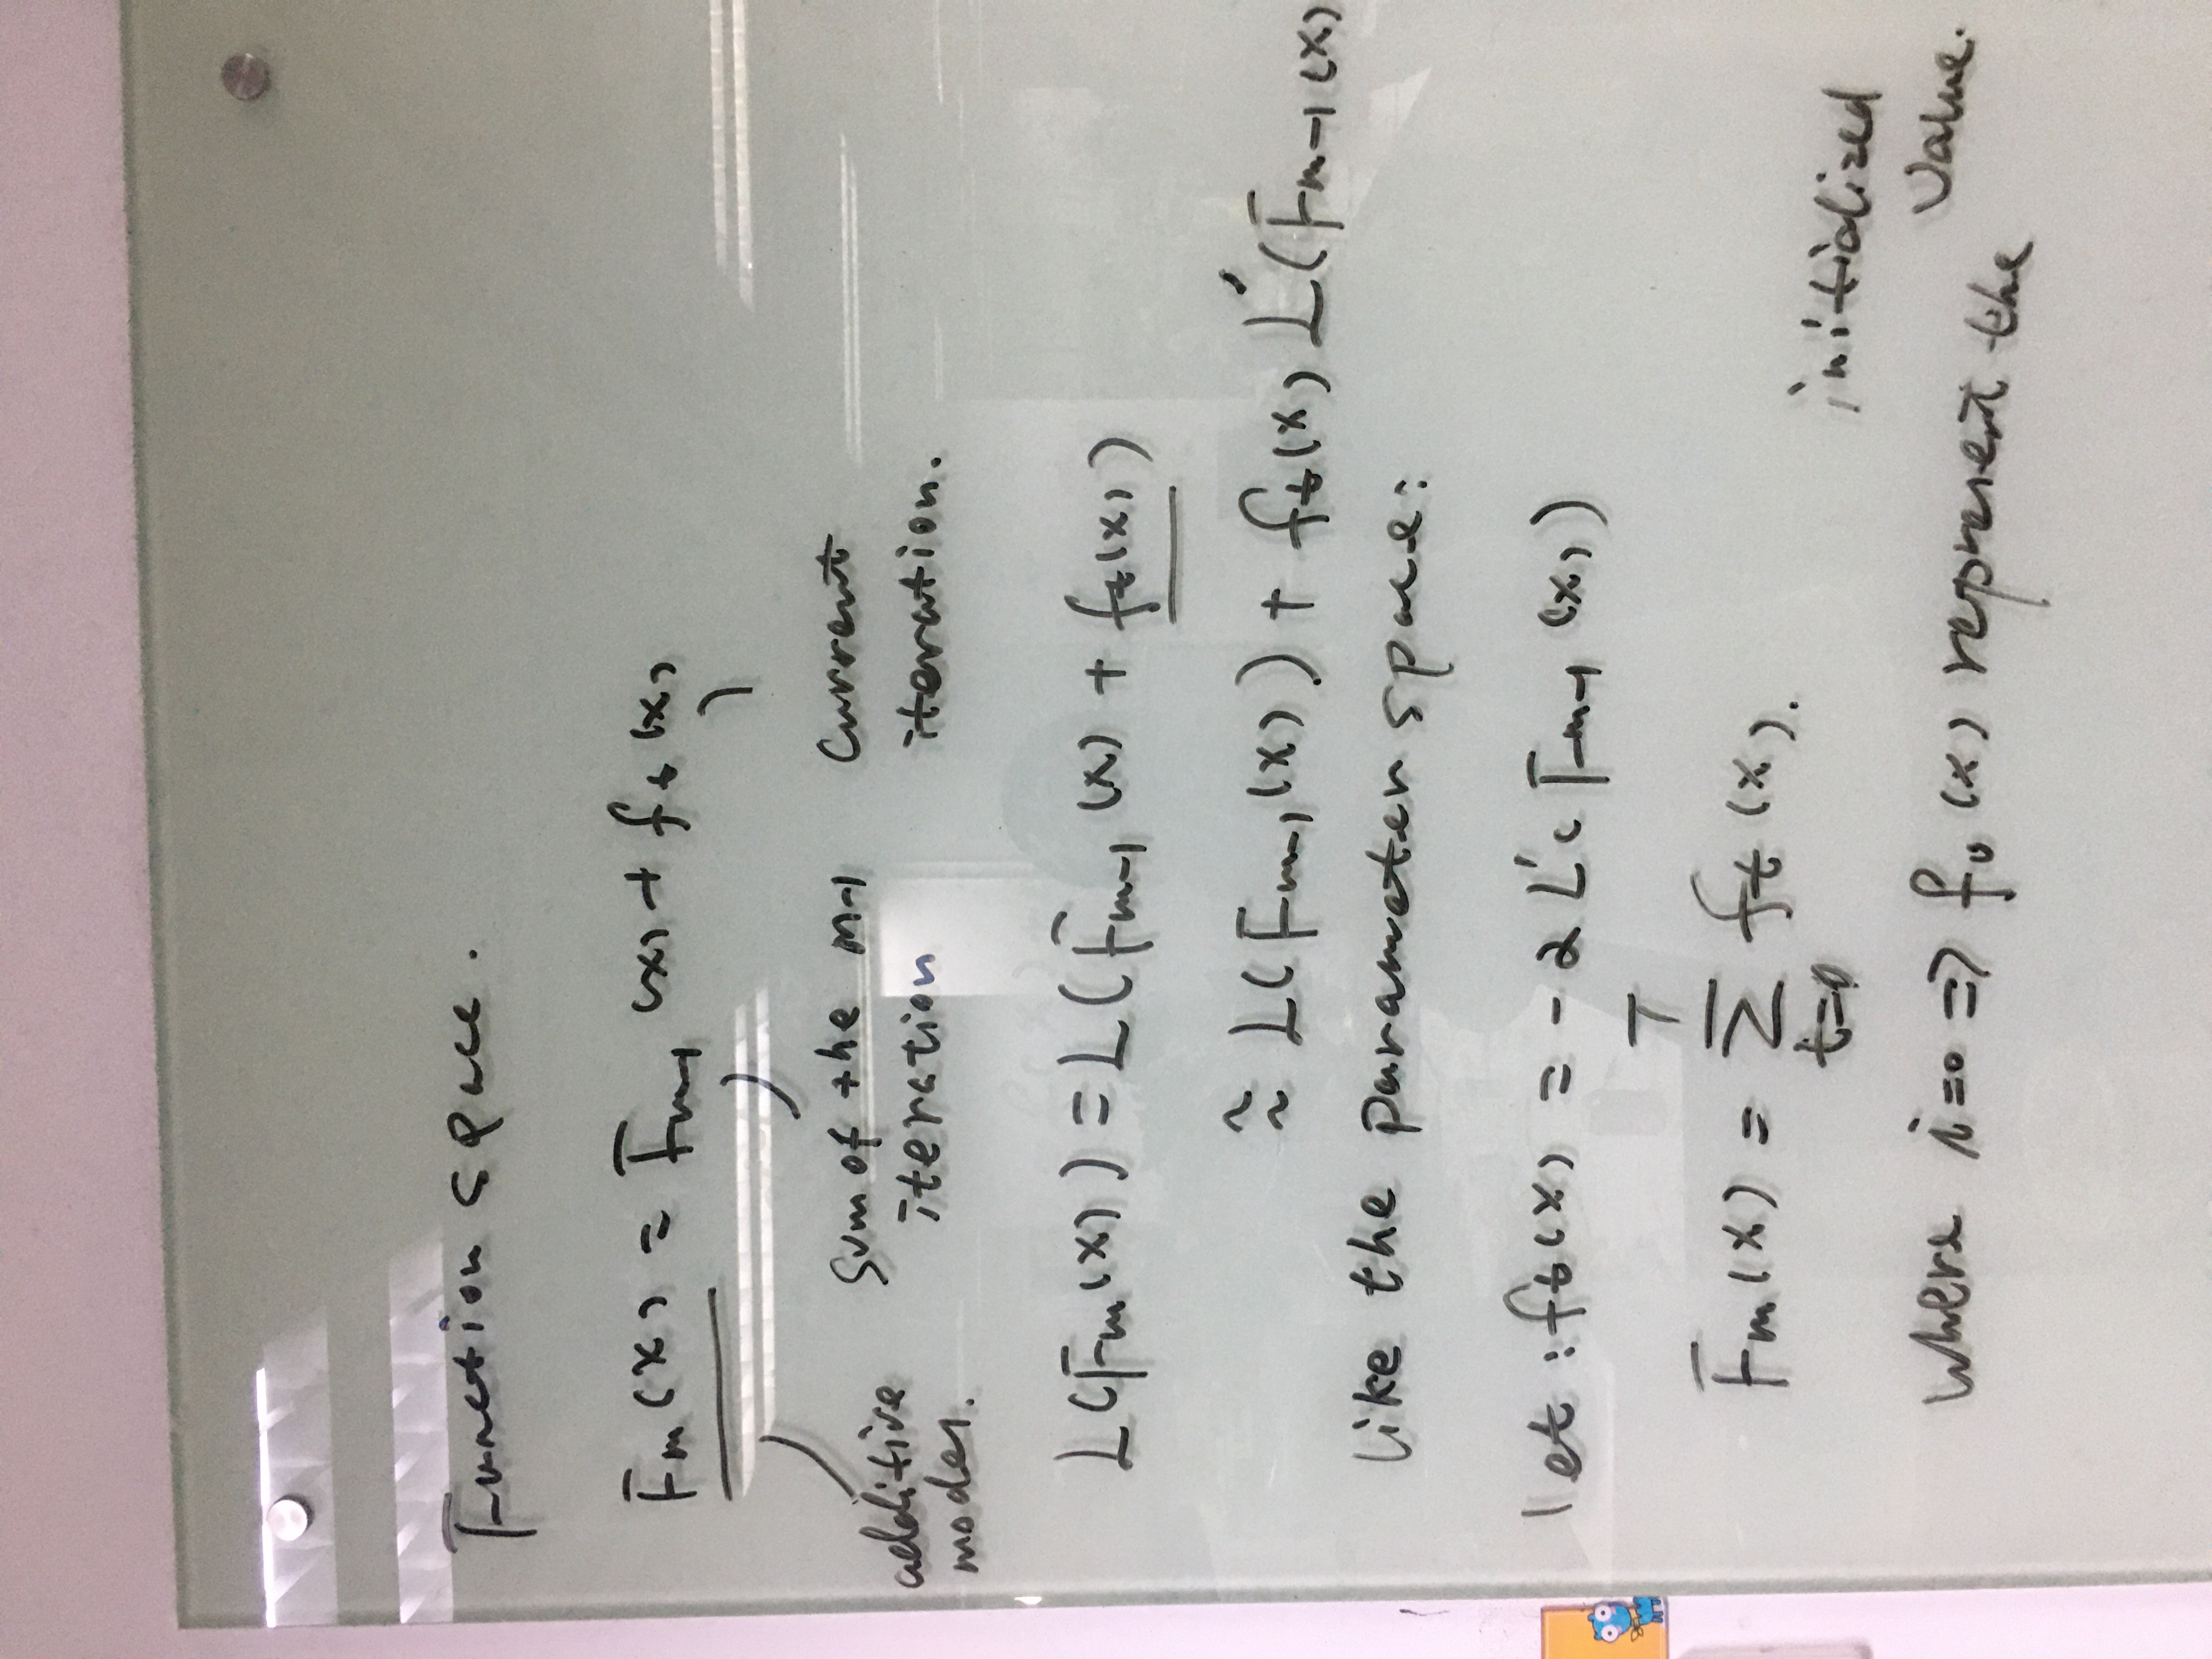 Function space.
Fm(x) = Fm-1(x) + ft(x)
additive model.
sum of the m-1 iteration
current iteration.
L(Fm(x)) = L(Fm-1(x) + ft(x))
≈ L(Fm-1(x)) + ft(x) L'(Fm-1(x)
like the parameter space:
let : ft(x) = -α L'(Fm-1(x))
Fm(x) = Σ_{t=0}^{T} ft(x).
where i=0 => f0(x) represent the initialized value.